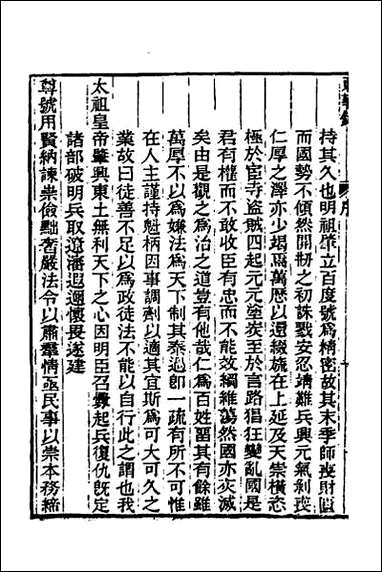 持其久也明祖肇立百度號爲精密故其末季師喪財匱
而國勢不傾然開刱之初誅戮安忍靖難兵興元氣剝喪
仁厚之澤亦少塌焉萬歷以還綴旒在上延及天崇橫恣
極於宦寺盜賊四起元元塗炭至於言路猖狂變亂國是
君有權而不敢收臣有忠而不能效綱維蕩然國亦灾滅
矣由是觀之爲治之道豈有他哉仁爲百姓畱其有餘雖
萬厚不以爲嫌法爲天下制其泰過卽一疏有所不可惟
在人主謹持魁柄因事調劑以適其宜斯爲可大可久之
業故曰徒善不足以爲政徒法不能以自行此之謂也我
太祖皇帝肇興東土無利天下之心因明臣召釁起兵復仇旣定
諸部破明兵取遼瀋遐邇懷畏遂建
尊號用賢納諫崇儉黜奢嚴法令以肅羣情亟民事以崇本務締